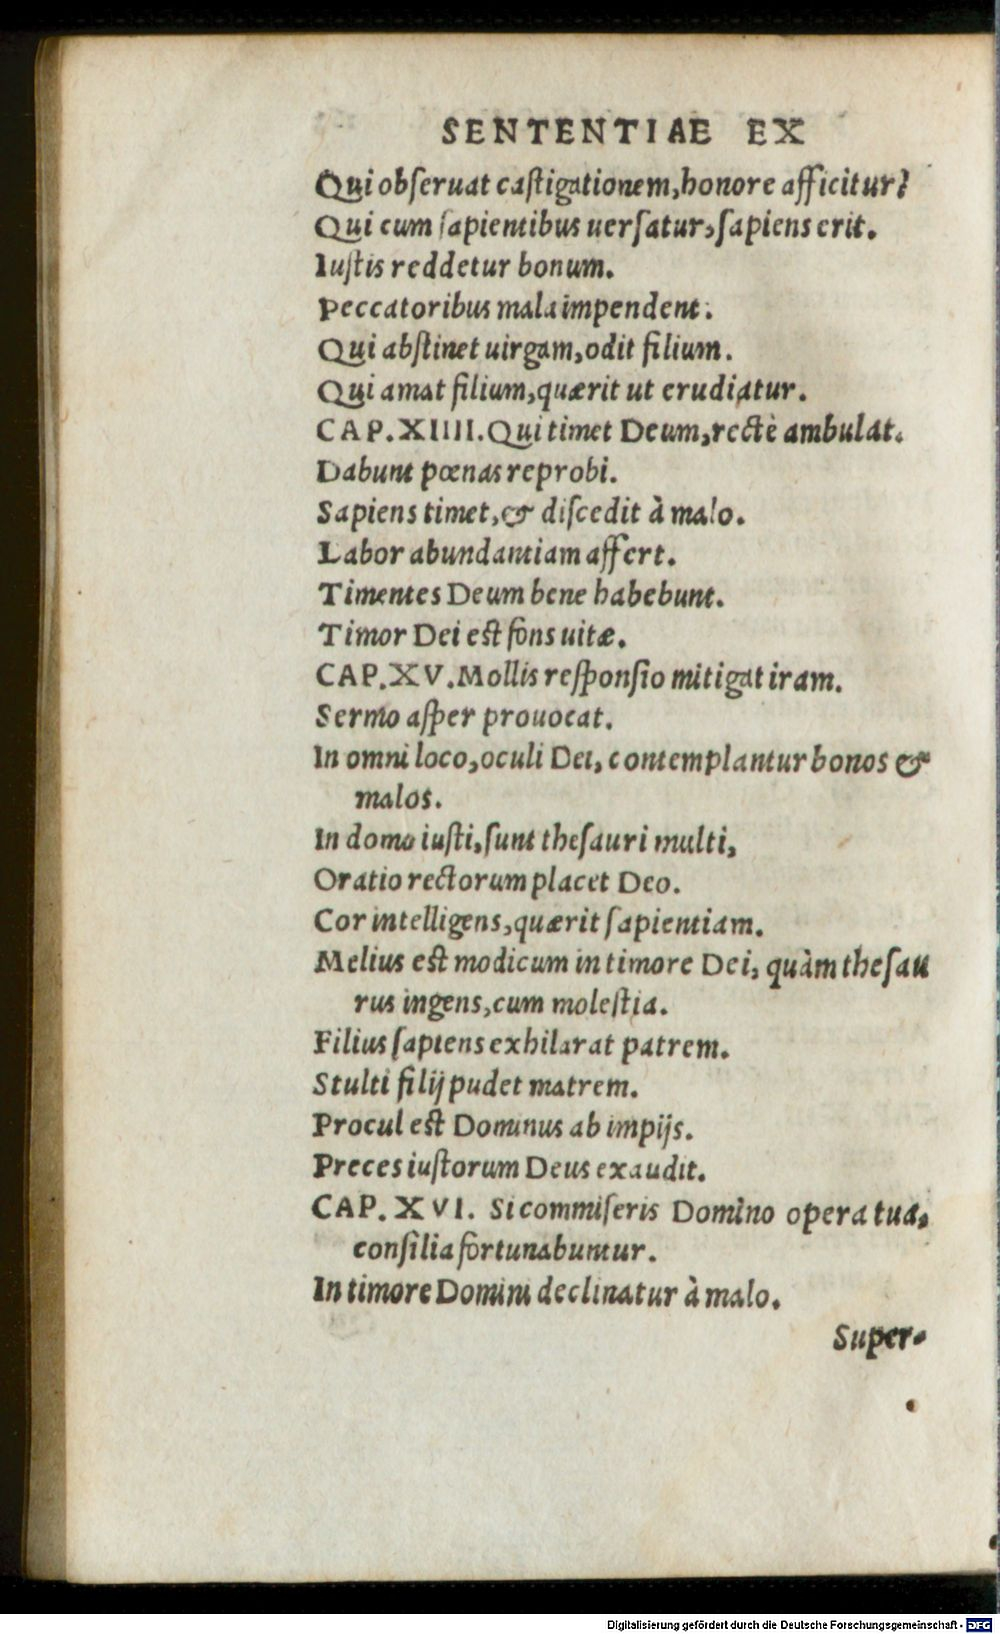 SENTENTIAE EX
Qui obſeruat caſtigationem, honore afficitur?
Qui cum ſapientibus uerſatur, ſapiens erit.
Iuſtis reddetur bonum.
Peccatoribus mala impendent.
Qui abſtinet uirgam, odit filium.
Qui amat filium, quærit ut erudiatur.
CAP. XIIII. Qui timet Deum, rectè ambulat.
Dabunt pœnas reprobi.
Sapiens timet, & diſcedit à malo.
Labor abundantiam affert.
Timentes Deum bene habebunt.
Timor Dei eſt fons uitæ.
CAP. XV. Mollis reſponſio mitigat iram.
Sermo aſper prouocat.
In omni loco, oculi Dei, contemplantur bonos &
malos.
In domo iuſti, ſunt theſauri multi,
Oratio rectorum placet Deo.
Cor intelligens, quærit ſapientiam.
Melius eſt modicum in timore Dei, quàm theſau
rus ingens, cum moleſtia.
Filius ſapiens exhilarat patrem.
Stulti filij pudet matrem.
Procul eſt Dominus ab impijs.
Preces iuſtorum Deus exaudit.
CAP. XVI. Si commiſeris Domino opera tua,
conſilia fortunabuntur.
In timore Domini declinatur à malo.
Super-
Digitalisierung gefördert durch die Deutsche Forschungsgemeinschaft - DFG